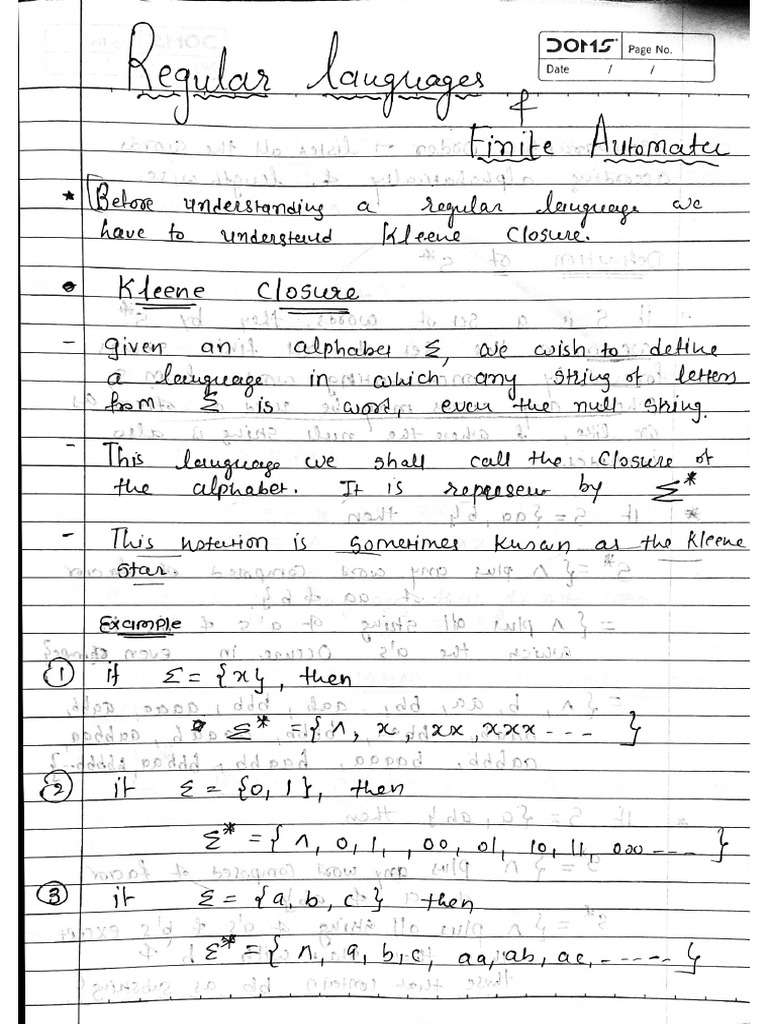 DOMS Page No.
Date / /
Regular languages
&
Finite Automata
* Before understanding a regular language we
have to understand Kleene Closure.
• Kleene Closure
- given an alphabet Σ, we wish to define
a language in which any string of letters
from Σ is word, even the null string.
- This language we shall call the closure of
the alphabet. It is represen by Σ*
- This notation is sometimes known as the Kleene
star
Example
① if Σ = {x}, then
* Σ* = {Λ, x, xx, xxx --- }
② if Σ = {0, 1}, then
Σ* = {Λ, 0, 1, 00, 01, 10, 11, 000 --- }
③ if Σ = {a, b, c} then
Σ* = {Λ, a, b, c, aa, ab, ac, ----- }